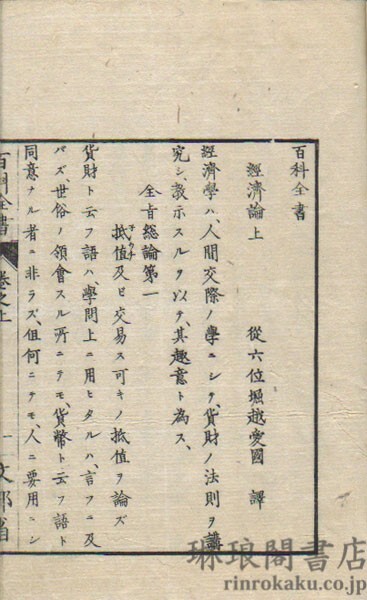 百科全書
經濟論上 從六位堀越愛國 譯
經濟學ハ、人間交際ノ學ニシテ、貨財ノ法則ヲ講
究シ、教示スルヲ以テ、其趣意ト為ス、
全旨総論第一
抵値及ビ交易ス可キノ抵値ヲ論ズ
貨財ト云フ語ハ、學問上ニ用ヒタルハ、言フニ及
バズ、世俗ノ領會スル所ニテモ、貨幣ト云フ語ト
同意ナル者ニ非ラズ、但何ニテモ、人ニ要用ニシ
百科全書 卷之上 一 文部省
琳琅閣書店
rinrokaku.co.jp